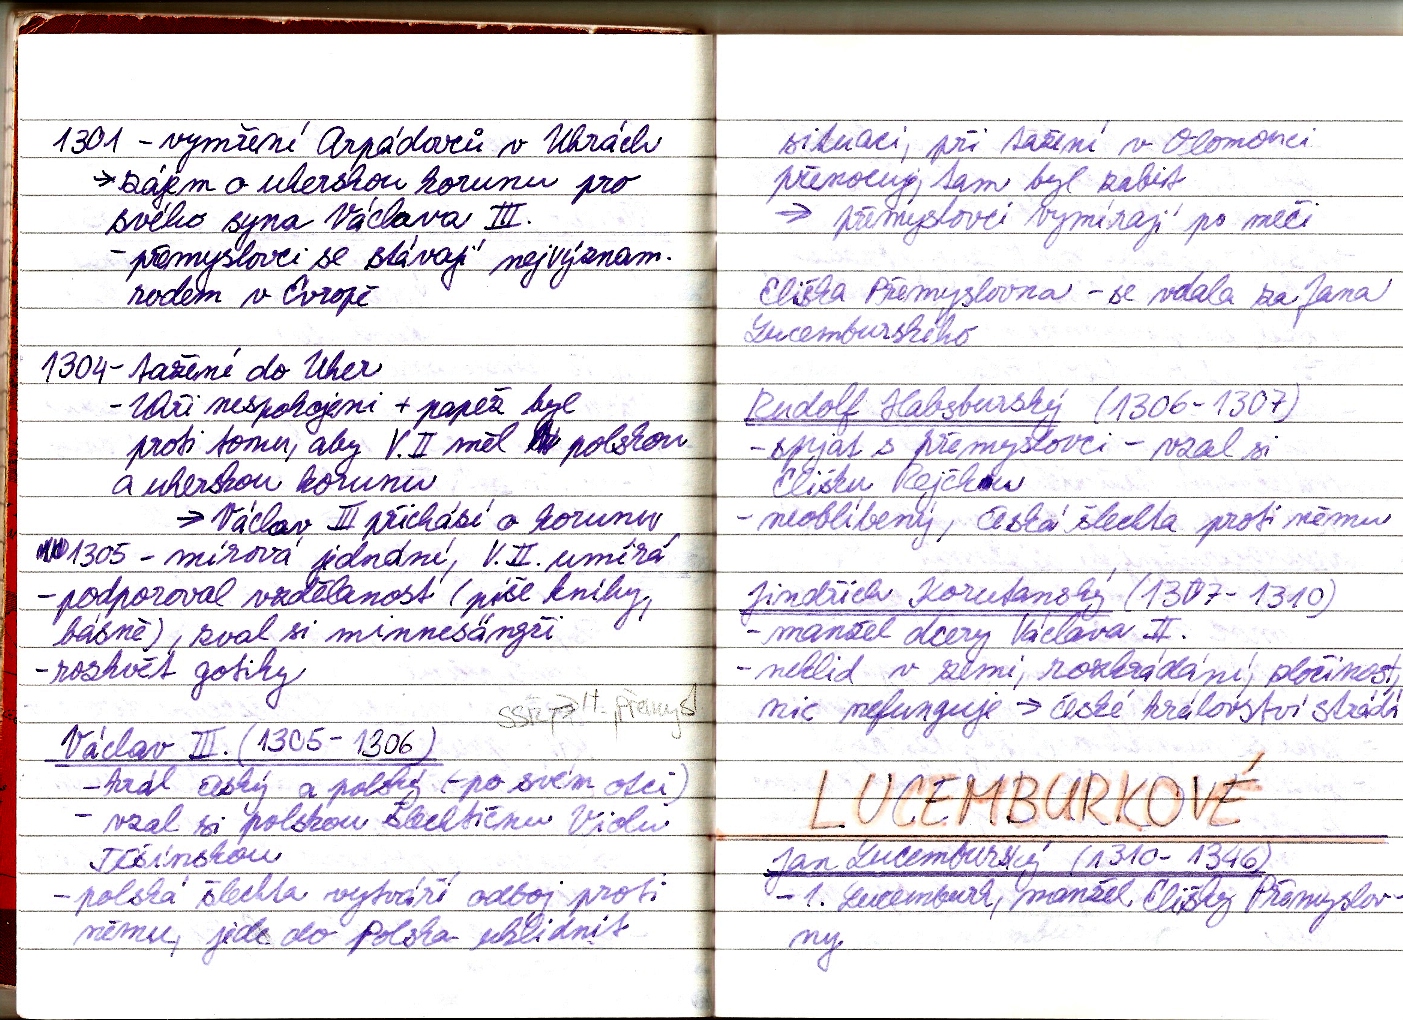 1301 - vymření Arpádovců v Uhrách
→ zájem o uherskou korunu pro
svého syna Václava III.
- přemyslovci se stávají nejvýznam.
rodem v Evropě
1304 - tažení do Uher
- Uhři nespokojeni + papež byl
proti tomu, aby V. II měl polskou
a uherskou korunu
→ Václav III přichází o korunu
1305 - mírová jednání, V. II. umírá
- podporoval vzdělanost (píše knihy,
básně), zval si minnesängři
- rozkvět gotiky
→ H. přemysl
Václav III. (1305 - 1306)
- král český a polský (- po svém otci)
- vzal si polskou šlechtičnu Violu
Těšínskou
- polská šlechta vytváří odboj proti
němu, jede do Polska uklidnit
situaci, při tažení v Olomouci
přenocuj, tam byl zabit
→ přemyslovci vymírají po meči
Eliška Přemyslovna - se vdala za Jana
Lucemburského
Rudolf Habsburský (1306 - 1307)
- spjat s přemyslovci - vzal si
Elišku Rejčku
- neoblíbený, česká šlechta proti němu
Jindřich Korutanský (1307 - 1310)
- manžel dcery Václava II.
- neklid v zemi, rozkrádání, zločinost,
nic nefunguje → české království strádá
LUCEMBURKOVÉ
Jan Lucemburský (1310 - 1346)
- 1. Lucemburk, manžel Elišky Přemyslov-
ny